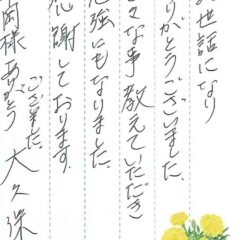 お世話になり
りがとうございました。
々な事教えていただき
勉強にもなりました。
感謝しております。
岡様ありがとう
ございました。
大久保